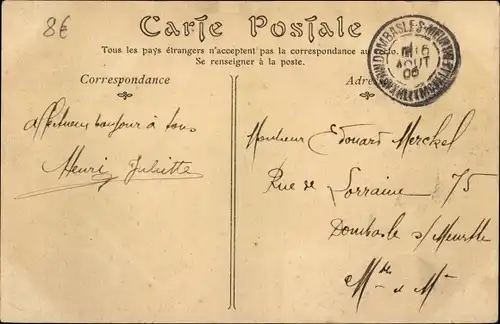 8€
Carte Postale
Tous les pays étrangers n'acceptent pas la correspondance au recto.
Se renseigner à la poste.
Correspondance
Adresse
DOMBASLE-S-MEURTHE
16
AOUT
06
affectueux bonjour à tous
Henri Juliette
Monsieur Edouard Merckel
Rue de Lorraine 75
Dombasle s/ Meurthe
Mthe et Mlle